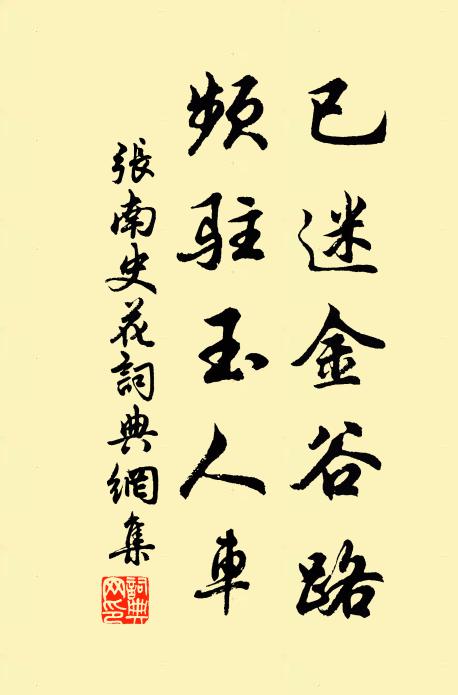 已迷金谷路
頻駐玉人車
張南史花詞典網集
詞典